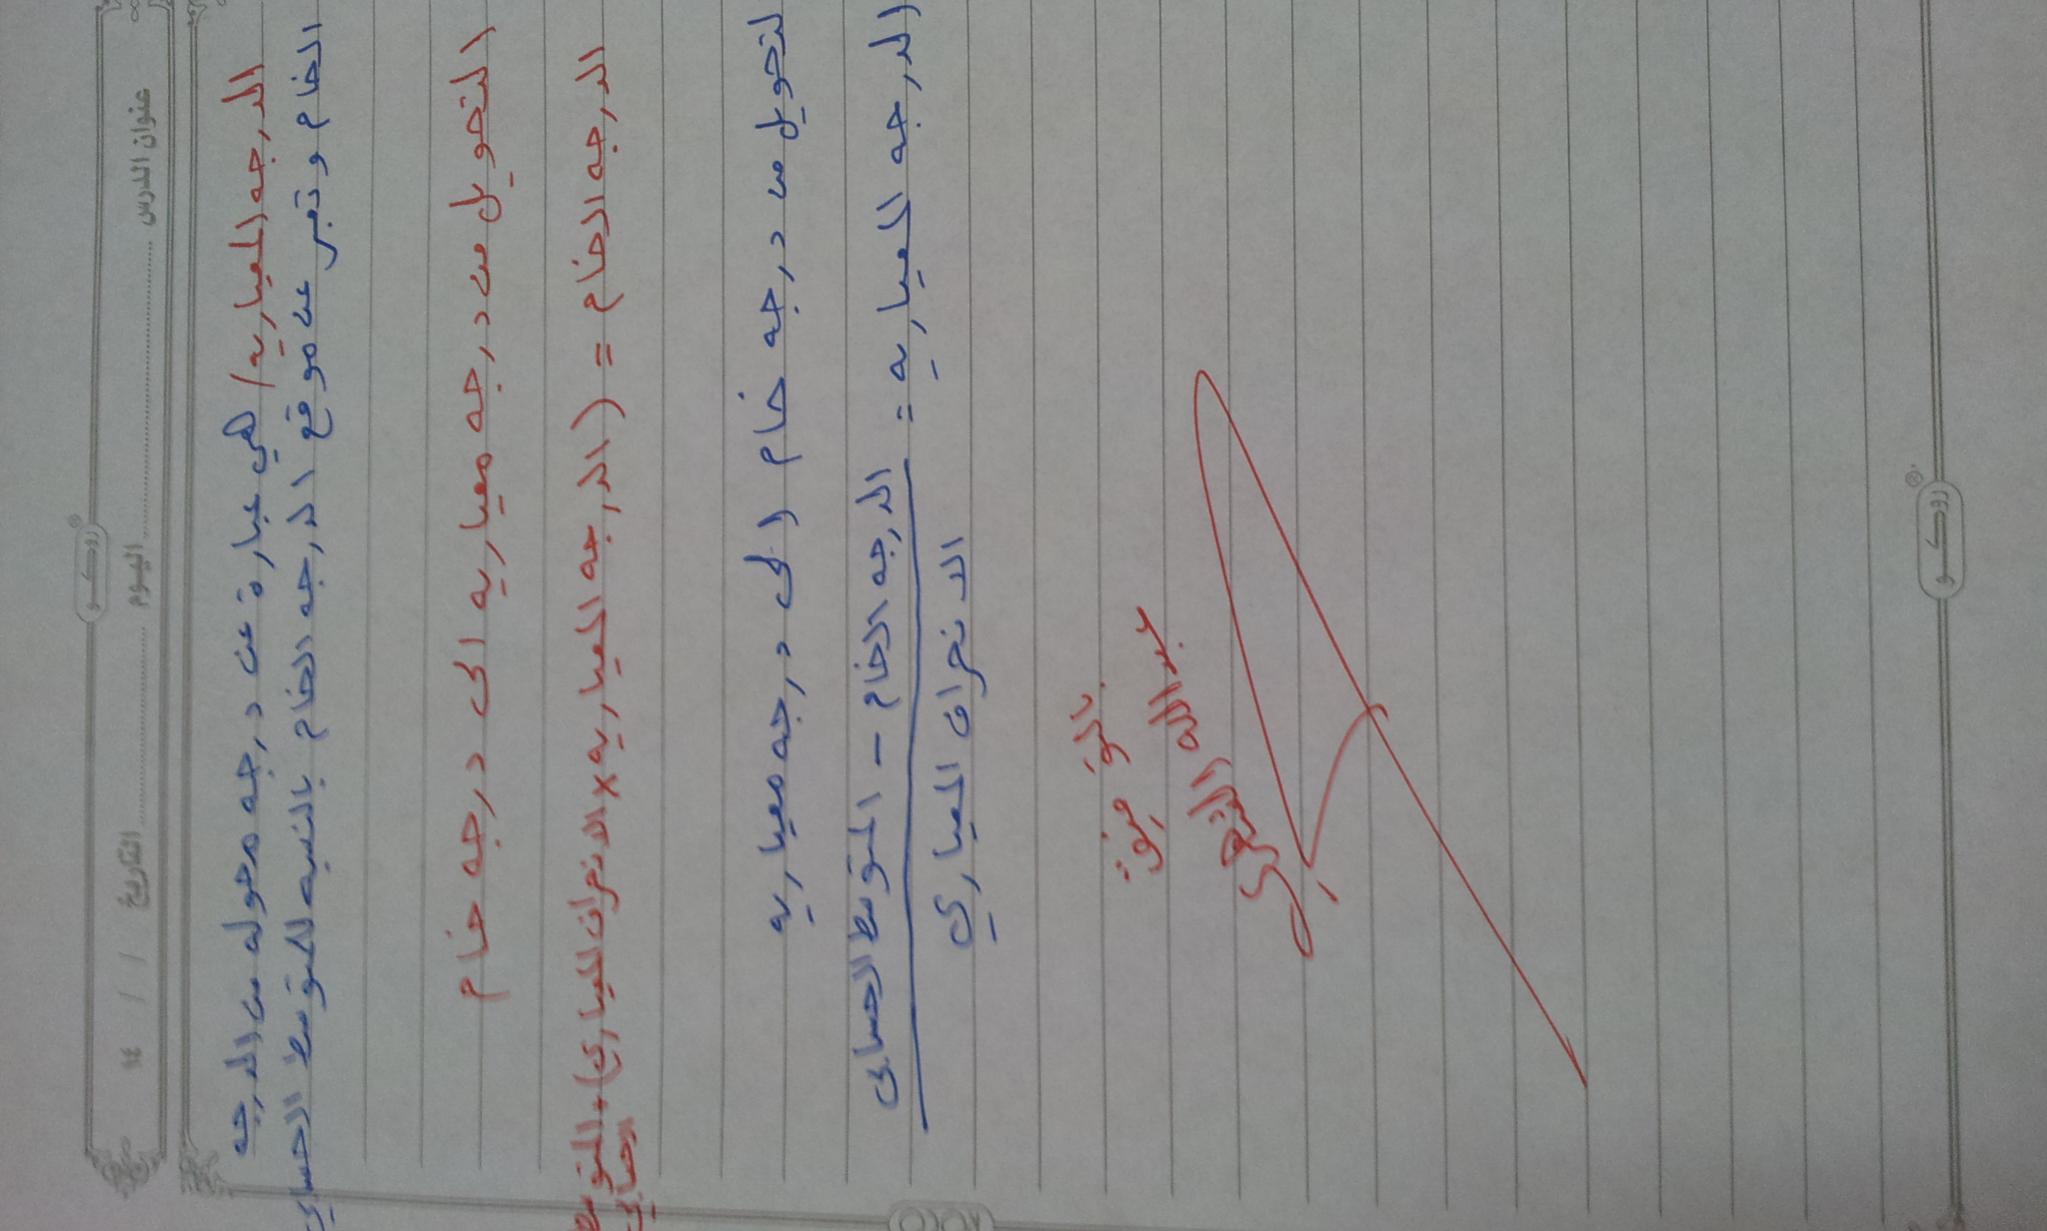 روكو
عنوان الدرس اليوم التاريخ / / ١٤
الدرجه المعياريه / هي عبارة عن درجه محوله من الدرجه
الخام و تعبر عن موقع الدرجه الخام بالنسبه للمتوسط الحسابي
التحويل من درجه معياريه الى درجه خام
الدرجه الخام = (الدرجه المعياريه × الانحراف المعياري) + المتوسط
الحسابي
لتحويل من درجه خام الى درجه معياريه
الدرجه المعياريه = الدرجه الخام - المتوسط الحسابى
الانحراف المعياري
عبدالله
روكو